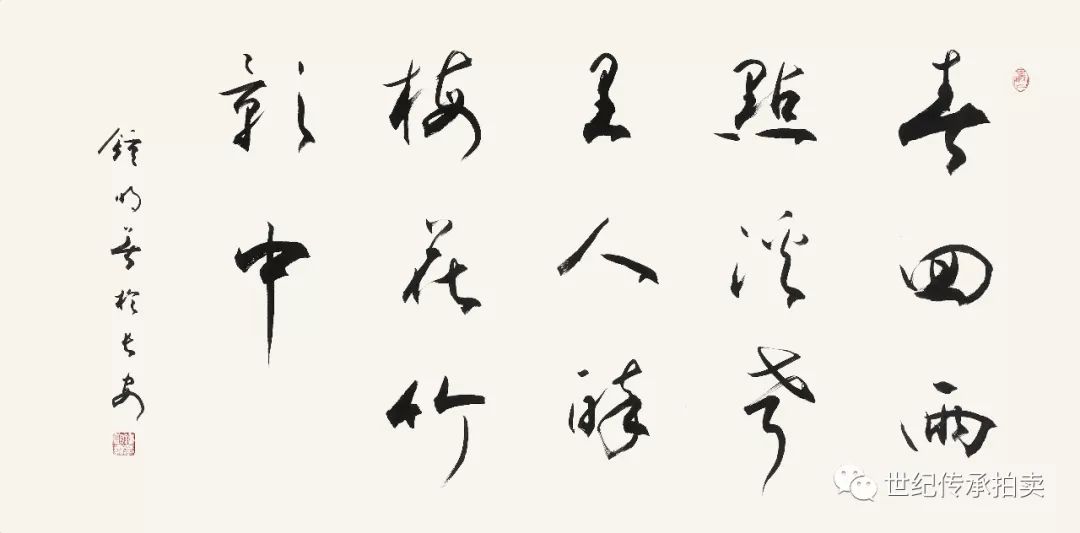 春回雨
點溪聲
里人醉
梅花竹
影中
鍾明善於長安
世纪传承拍卖